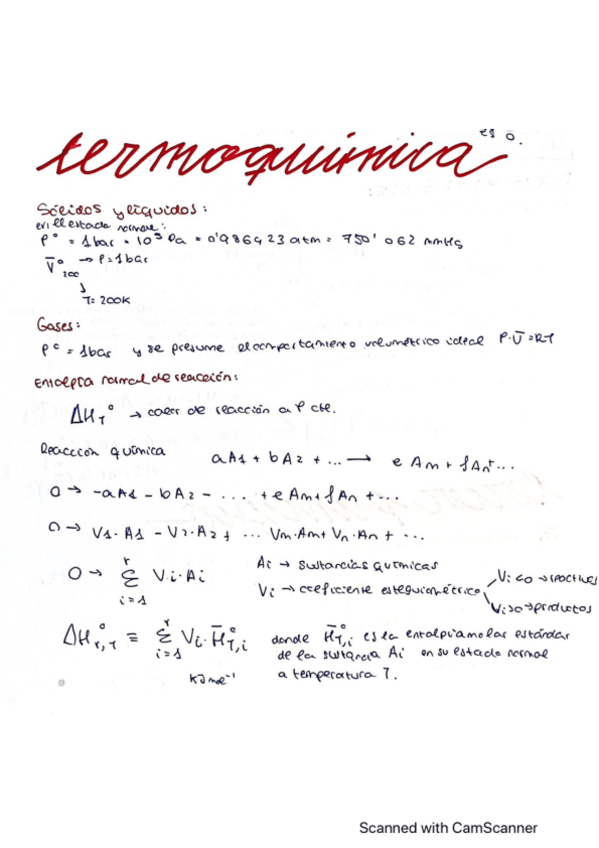 es o.
termoquímica
Sólidos y líquidos:
en el estado normal:
P° = 1bar = 10⁵ Pa = 0'986423 atm = 750'062 mmHg
V̄°₂₀₀ → P=1bar
↓
T=200K
Gases:
P° = 1bar y se presume el comportamiento volumétrico ideal P·Ū=RT
Entalpía normal de reacción:
ΔH_T° → calor de reacción a P cte.
Reacción química aA1 + bA2 + ... → eAm + fAn + ...
0 → -aA1 - bA2 - ... + eAm + fAn + ...
0 → V1·A1 - V2·A2 + ... Vm·Am + Vn·An + ...
0 → Σ Vi·Ai Ai → sustancias químicas
r
i=1
Vi → coeficiente estequiométrico
Vi<0 → reactivos
Vi>0 → productos
ΔH°r,T ≡ Σ Vi·H̄°T,i donde H̄°T,i es la entalpía molar estándar
r
i=1
de la sustancia Ai en su estado normal
kJ mol⁻¹ a temperatura T.
Scanned with CamScanner